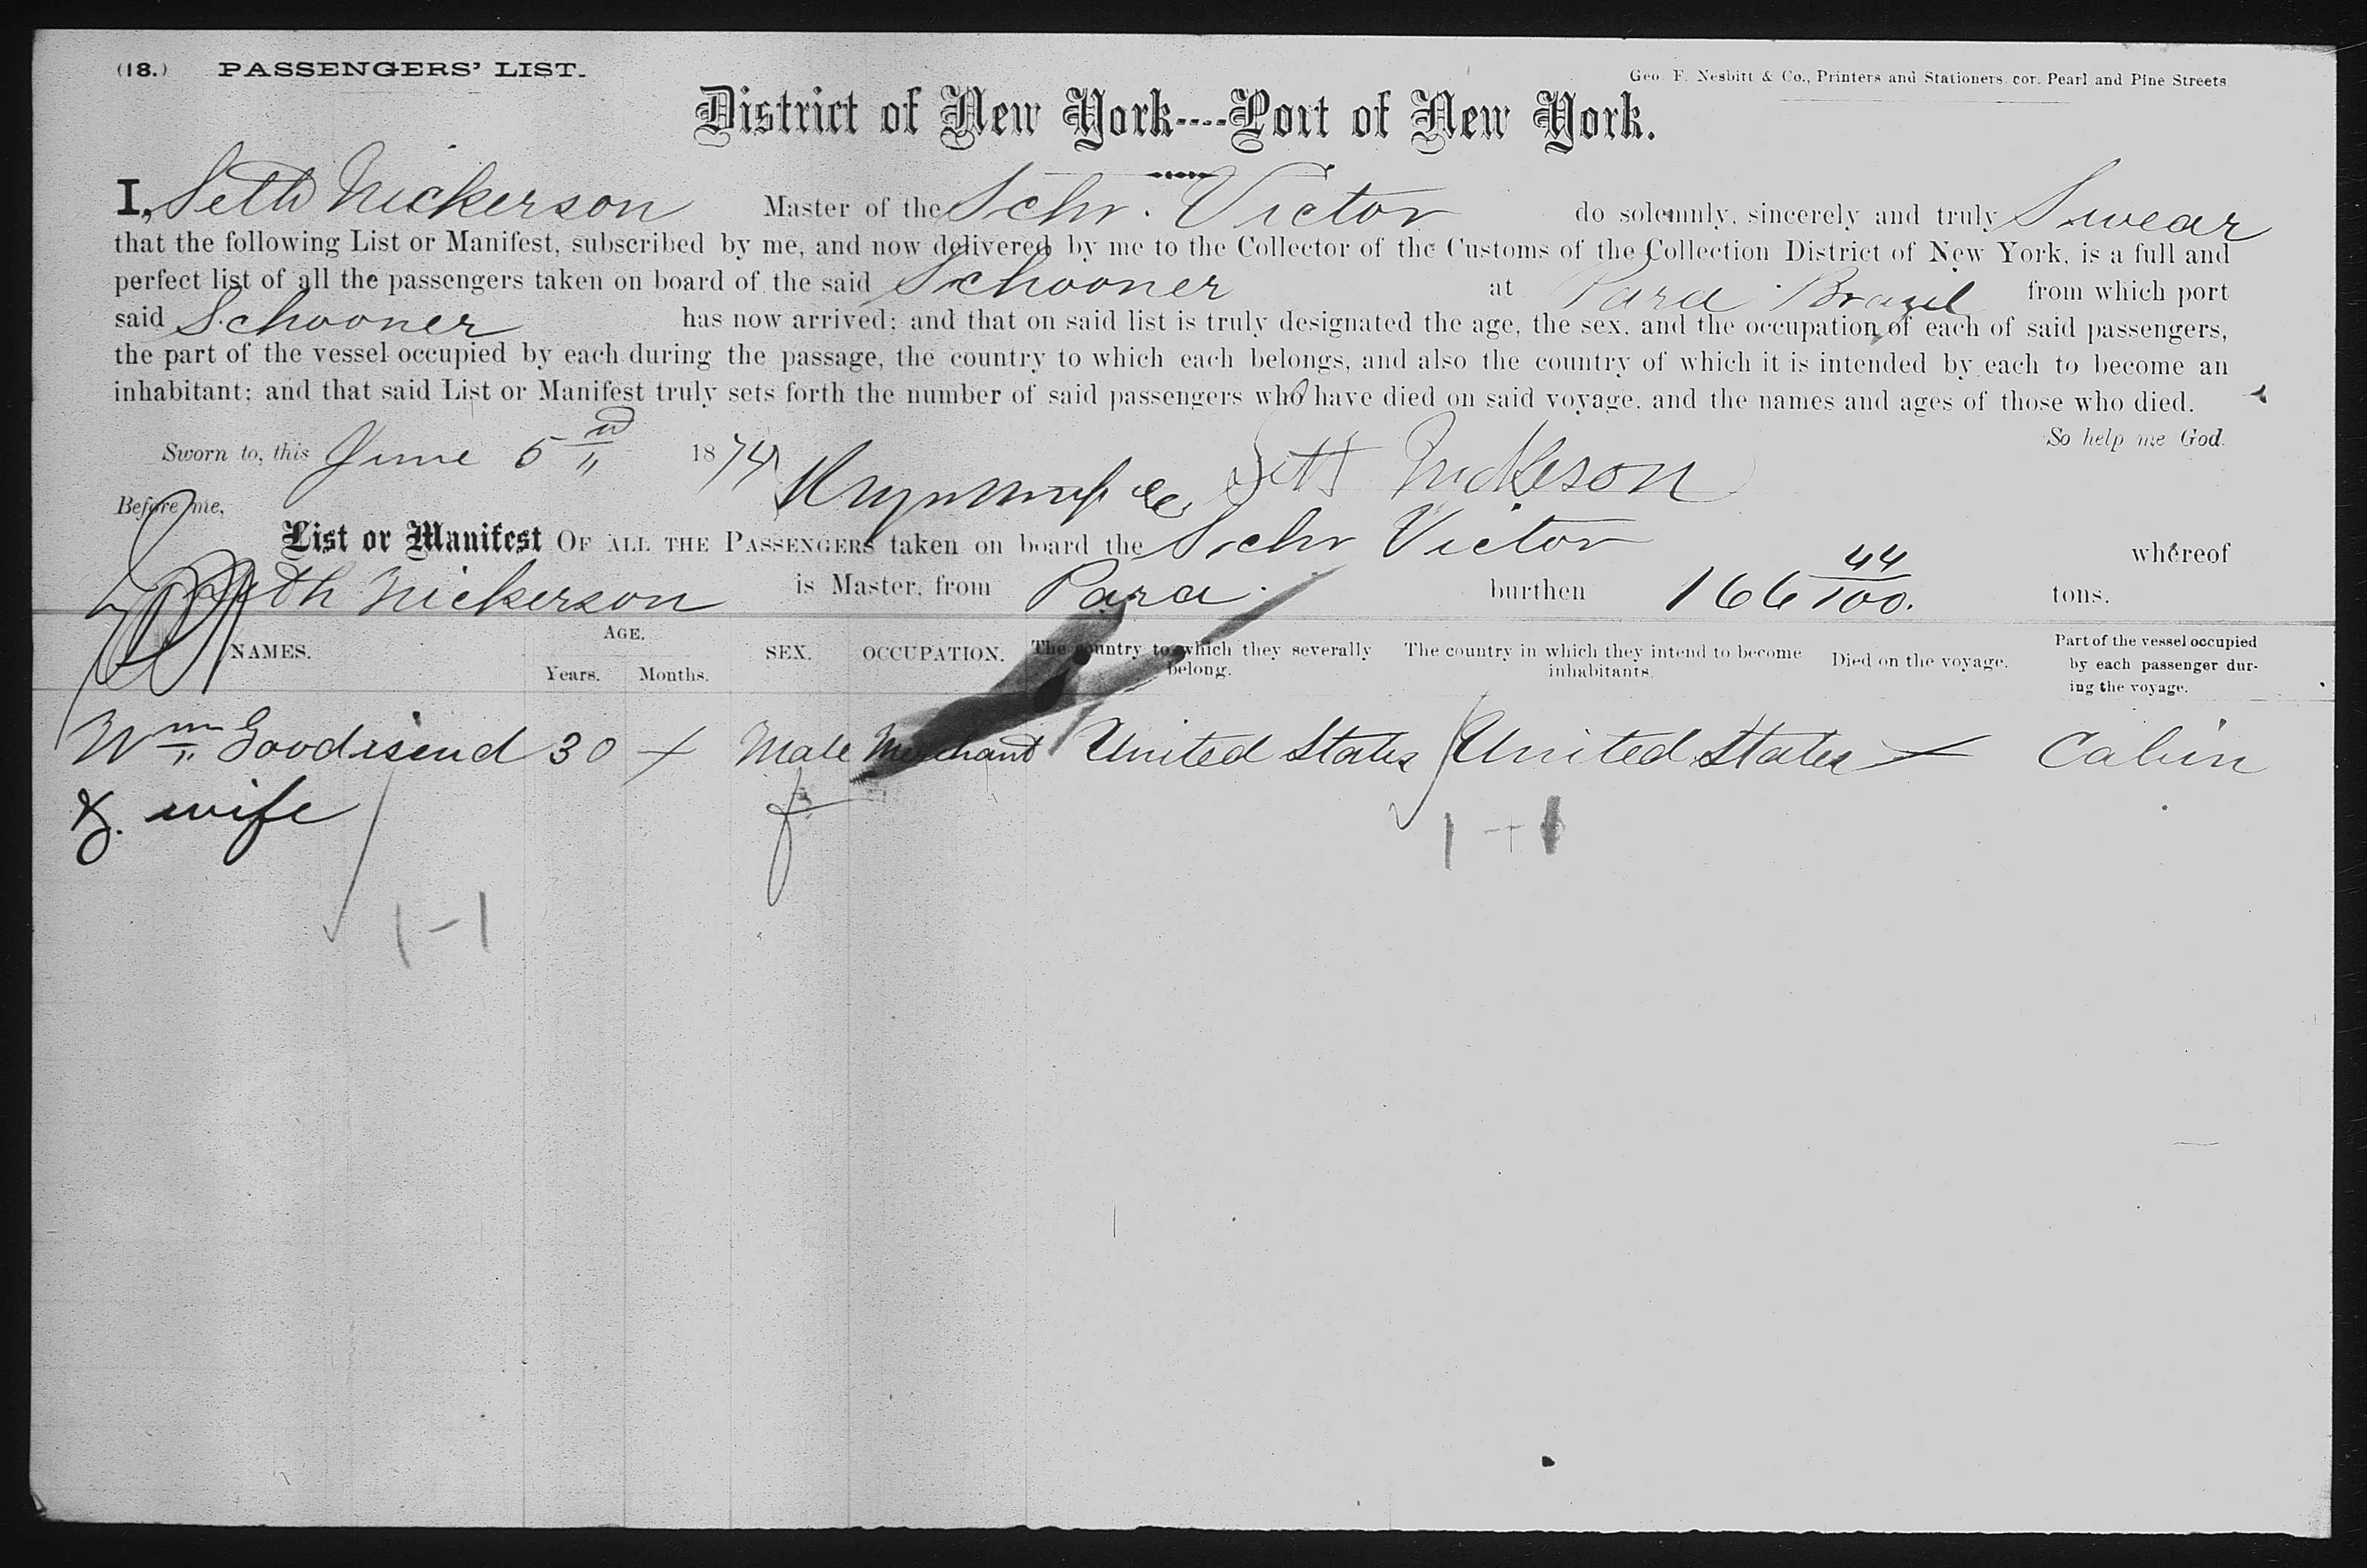 (18.) PASSENGERS' LIST.
Geo. F. Nesbitt & Co., Printers and Stationers, cor. Pearl and Pine Streets.
District of New York----Port of New York.
I, Seth Nickerson Master of the Schr. Victor do solemnly, sincerely and truly Swear
that the following List or Manifest, subscribed by me, and now delivered by me to the Collector of the Customs of the Collection District of New York, is a full and
perfect list of all the passengers taken on board of the said Schooner at Para Brazil from which port
said Schooner has now arrived; and that on said list is truly designated the age, the sex, and the occupation of each of said passengers,
the part of the vessel occupied by each during the passage, the country to which each belongs, and also the country of which it is intended by each to become an
inhabitant; and that said List or Manifest truly sets forth the number of said passengers who have died on said voyage, and the names and ages of those who died.
So help me God.
Sworn to, this June 5 1874 Seth Nickerson
Before me,
List or Manifest OF ALL THE PASSENGERS taken on board the Schr Victor whereof
Seth Nickerson is Master, from Para. burthen 166 44/100. tons.
NAMES. AGE. Years. Months. SEX. OCCUPATION. The country to which they severally belong. The country in which they intend to become inhabitants. Died on the voyage. Part of the vessel occupied by each passenger during the voyage.
Wm 30 + Male Merchant United States United States Cabin
&. wife f
1-1
1+1